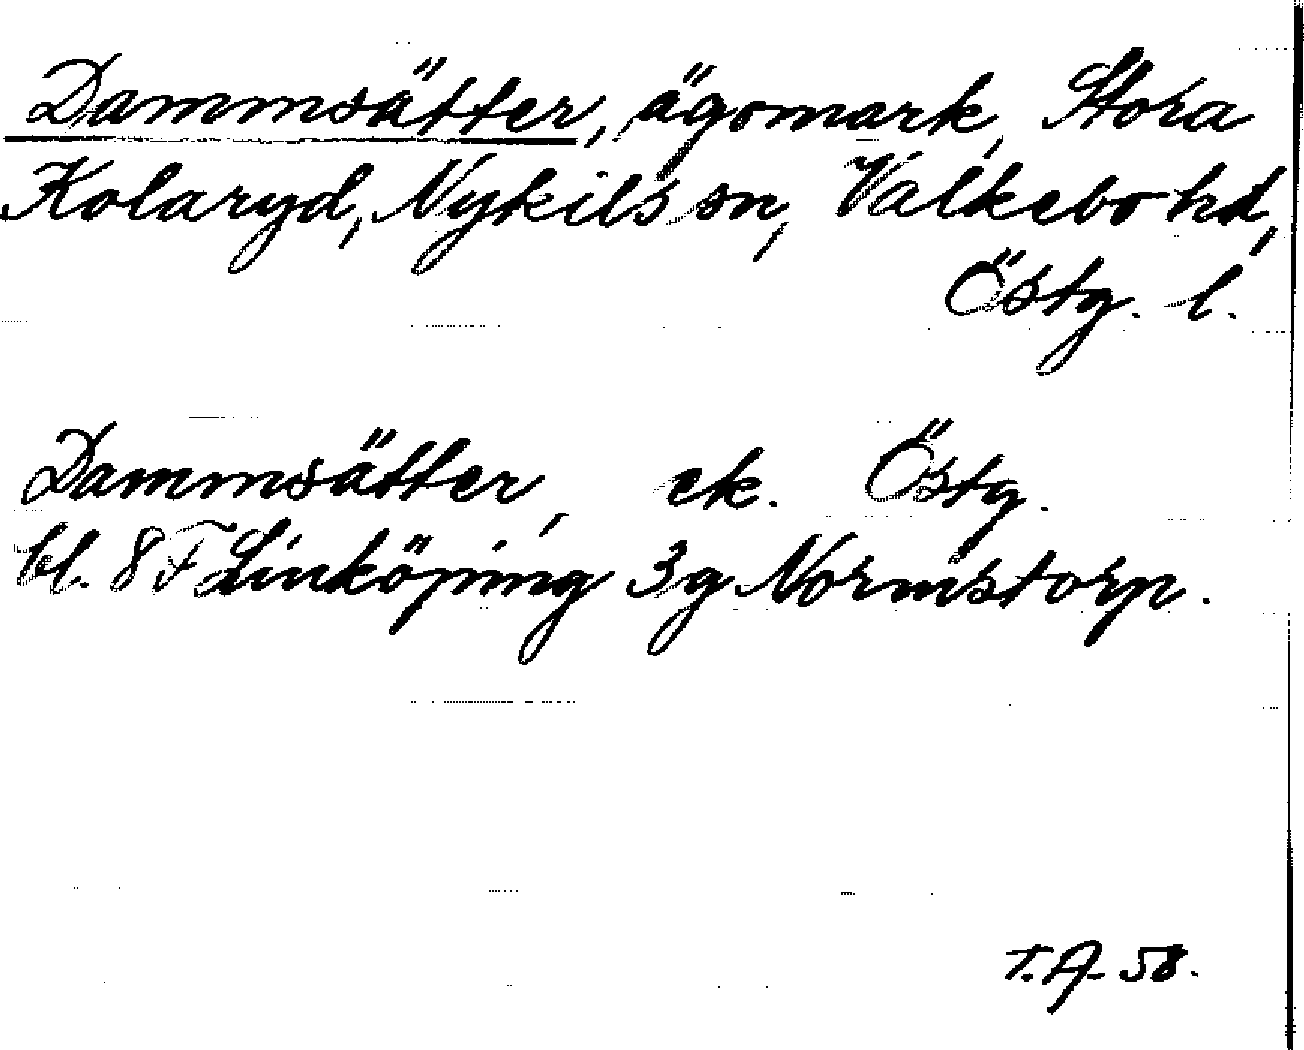 Dammsätter, ägomark, Stora
Kolaryd, Nykils sn, Valkebo hd,
Östg. l.
Dammsätter, ek. Östg.
bl. 8 F Linköping 3g Normstorp.
T. A- 58.